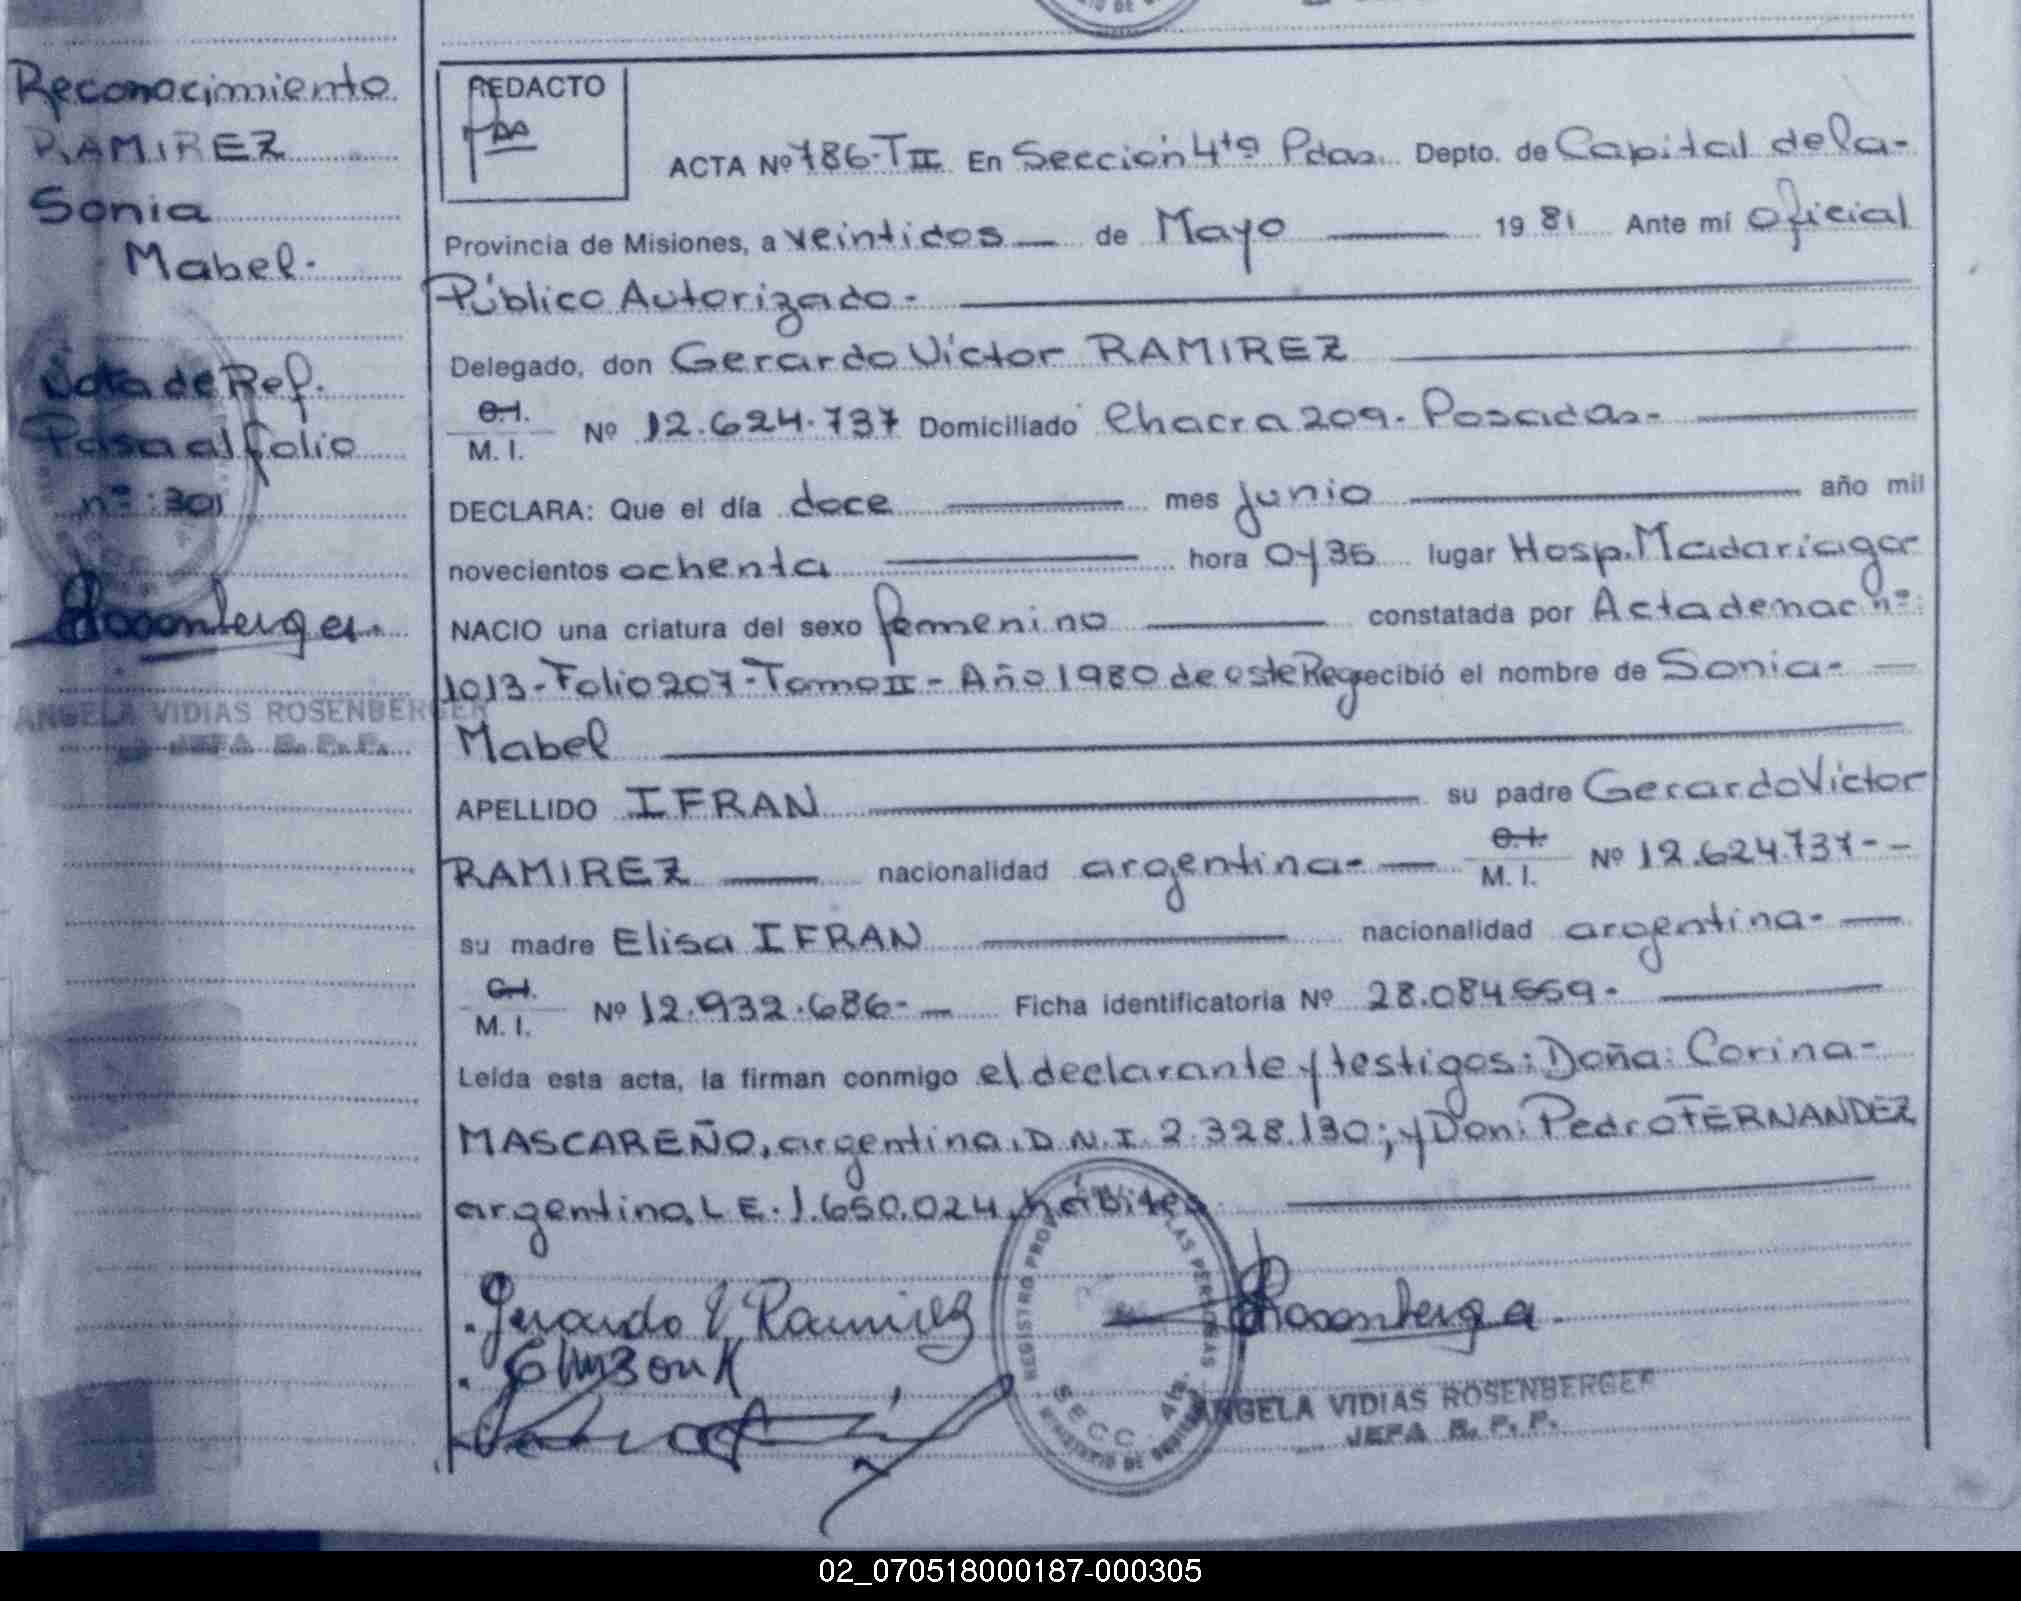 Reconocimiento
RAMIREZ
Sonia
Mabel.
Nota de Ref.
Pasa al folio
nº: 301
Rosenberger
ANGELA VIDIAS ROSENBERGER
JEFA R. P. P.
REDACTO
ACTA Nº 786-TII En Sección 4tª Pdas. Depto. de Capital de la-
Provincia de Misiones, a veintidos de Mayo 1981 Ante mí Oficial
Público Autorizado-
Delegado, don Gerardo Víctor RAMIREZ
C.I.
M. I. Nº 12.624.737 Domiciliado Chacra 209. Posadas-
DECLARA: Que el día doce mes junio año mil
novecientos ochenta hora 0y35 lugar Hosp. Madariaga
NACIO una criatura del sexo femenino constatada por Acta de nac nº:
1013-Folio 207-Tomo II-Año 1980 de este Reg recibió el nombre de Sonia-
Mabel
APELLIDO IFRAN su padre Gerardo Víctor
RAMIREZ nacionalidad argentina- C.I. M. I. Nº 12.624.737--
su madre Elisa IFRAN nacionalidad argentina-
C.I.
M. I. Nº 12.932.686- Ficha identificatoria Nº 28.084.659-
Leída esta acta, la firman conmigo el declarante y testigos: Doña: Corina-
MASCAREÑO, argentina, D.N.I. 2.328.130; y Don: Pedro FERNANDEZ
argentino, L E. 1.650.024, hábiles
Gerardo V Ramirez
Rosenberger
REGISTRO PROV LAS PERSONAS
SECC. 4ta.
MINISTERIO DE GOBIERNO
ANGELA VIDIAS ROSENBERGER
JEFA R. P. P.
02_070518000187-000305